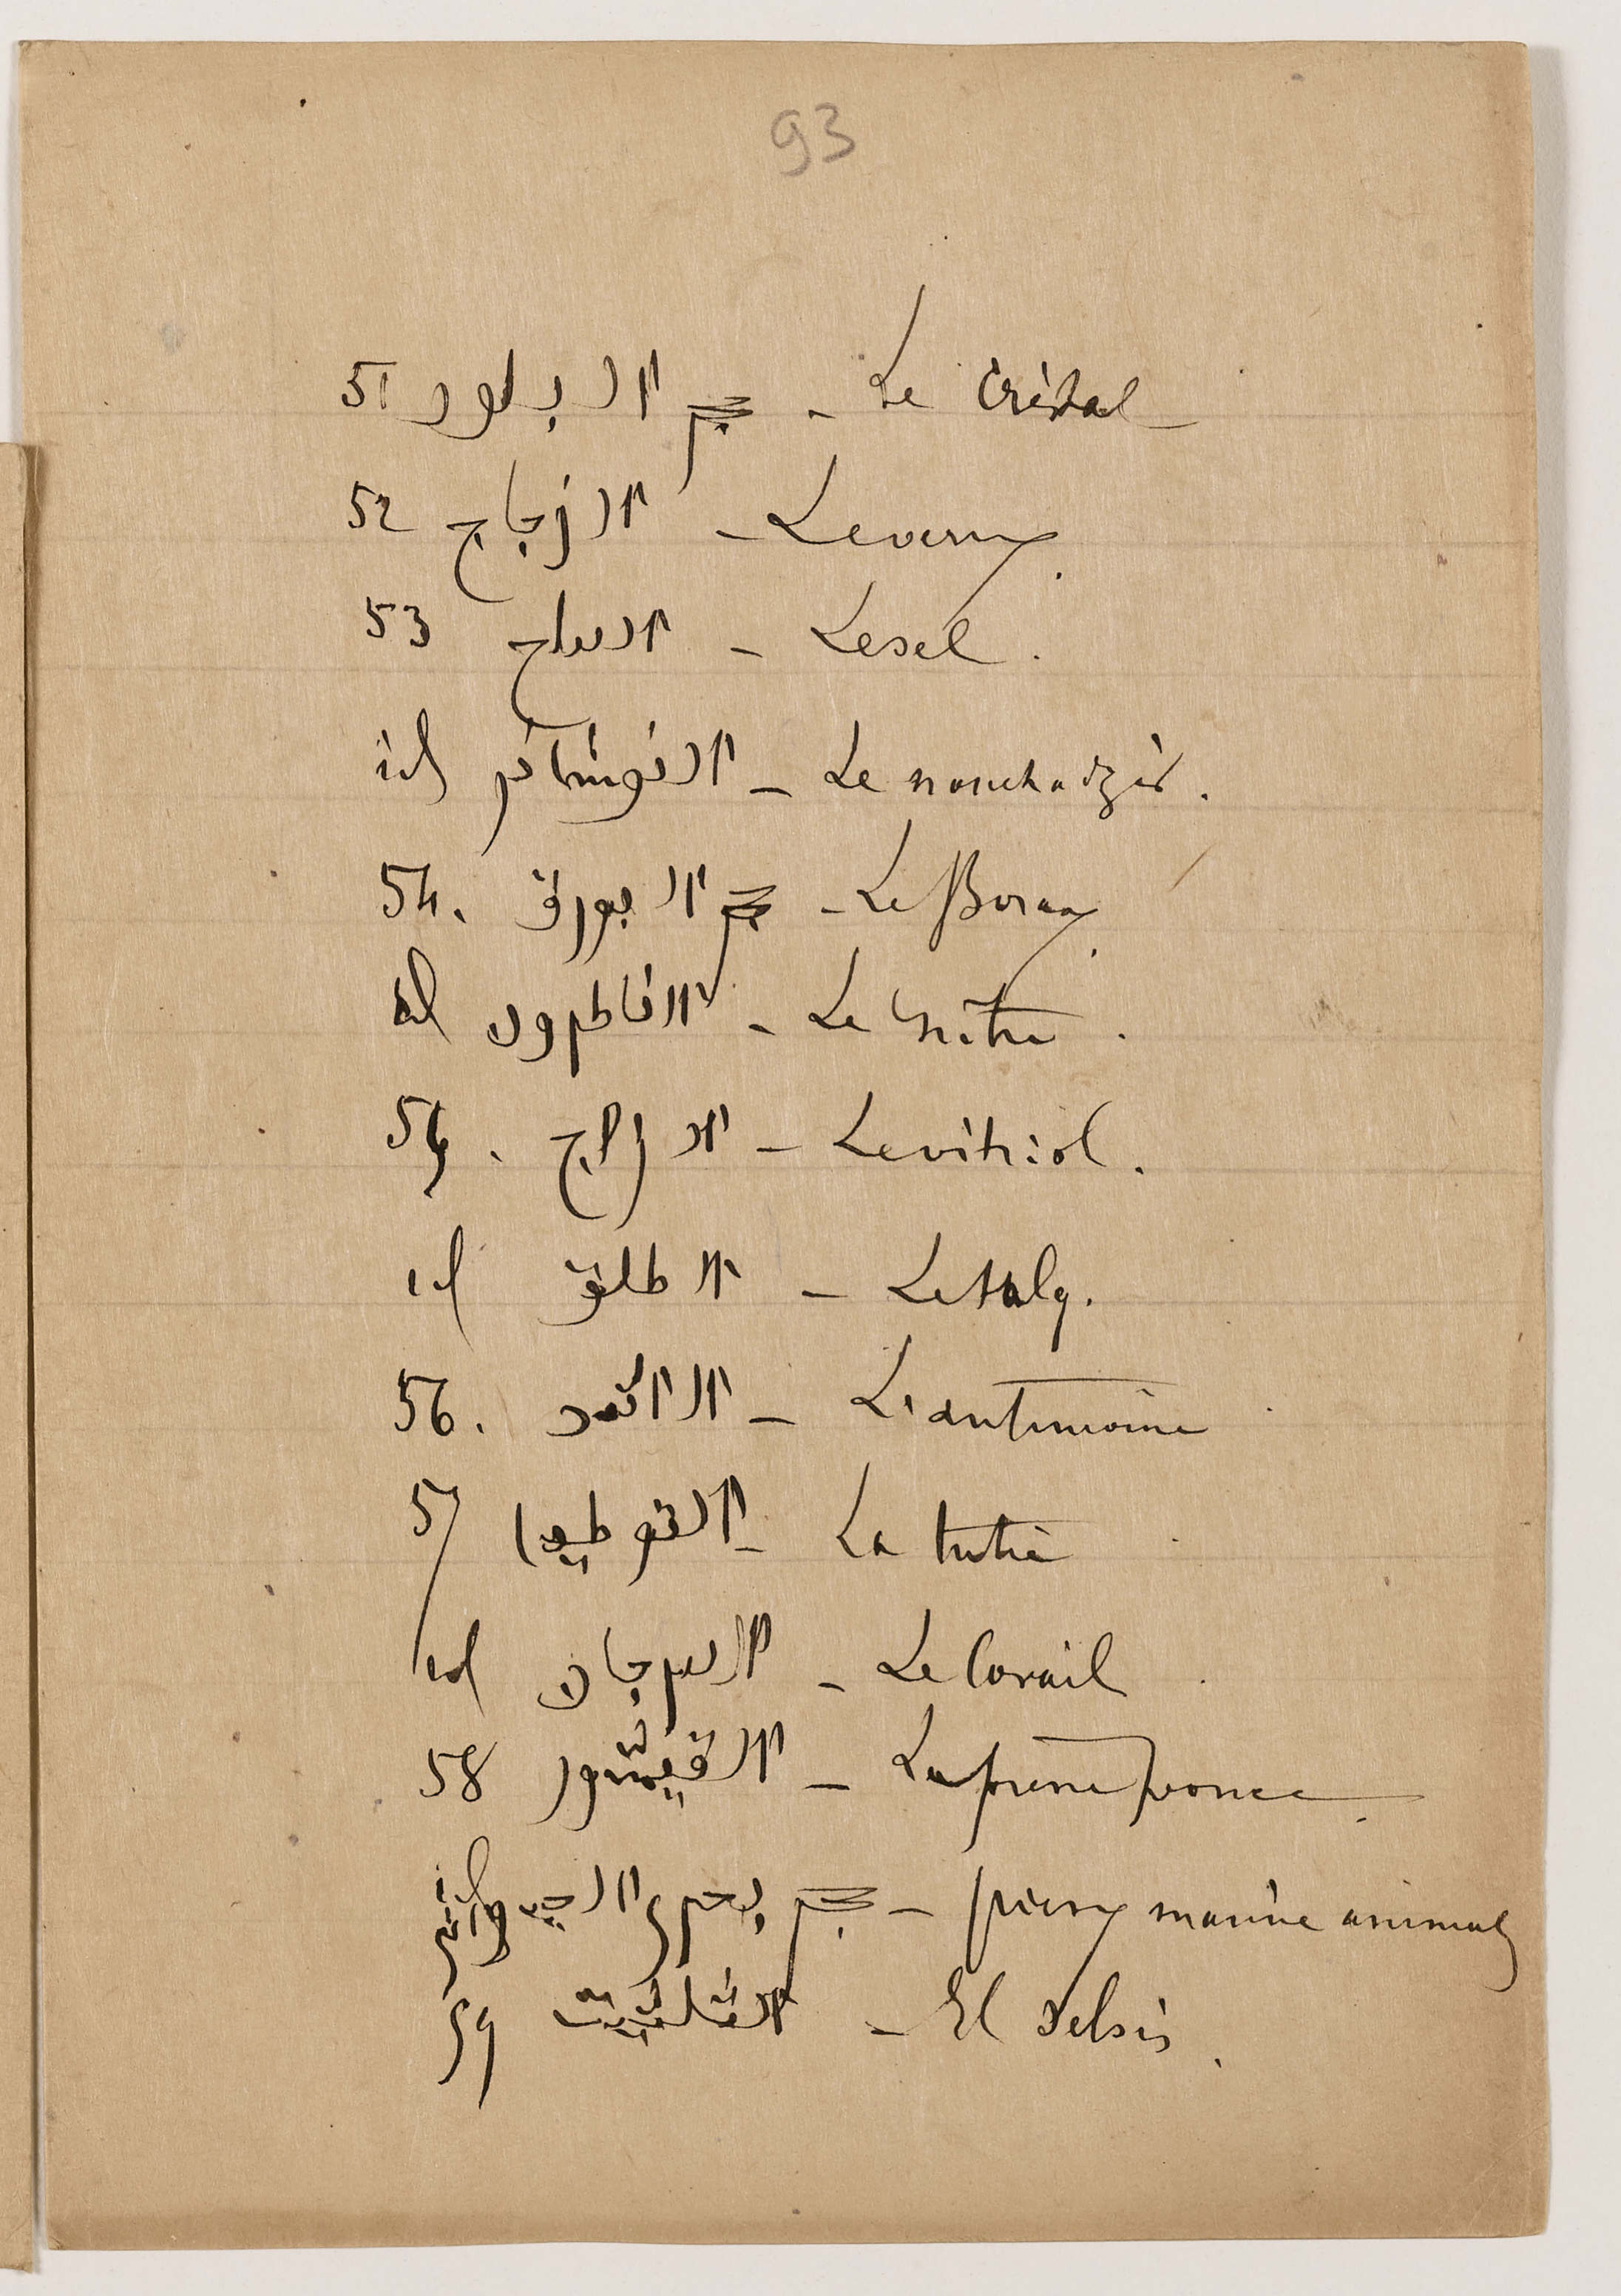 93
51 حجر البلور - Le Cristal
52 الزجاج - Le verre.
53 الملح - Le sel.
id النوشاذر - Le nouchadzir.
54. حجر البورق - Le Borax.
id الناطرون - Le Nitre.
55. الزاج - Le vitriol.
id الطلق - Le talq.
56. الاثمد - L'antimoine
57 التوطيا - La tutie
id المرجان - Le Corail
58 القيشور - La pierre ponce.
حجر بحري الحيواني - pierre marine animale
59
- El